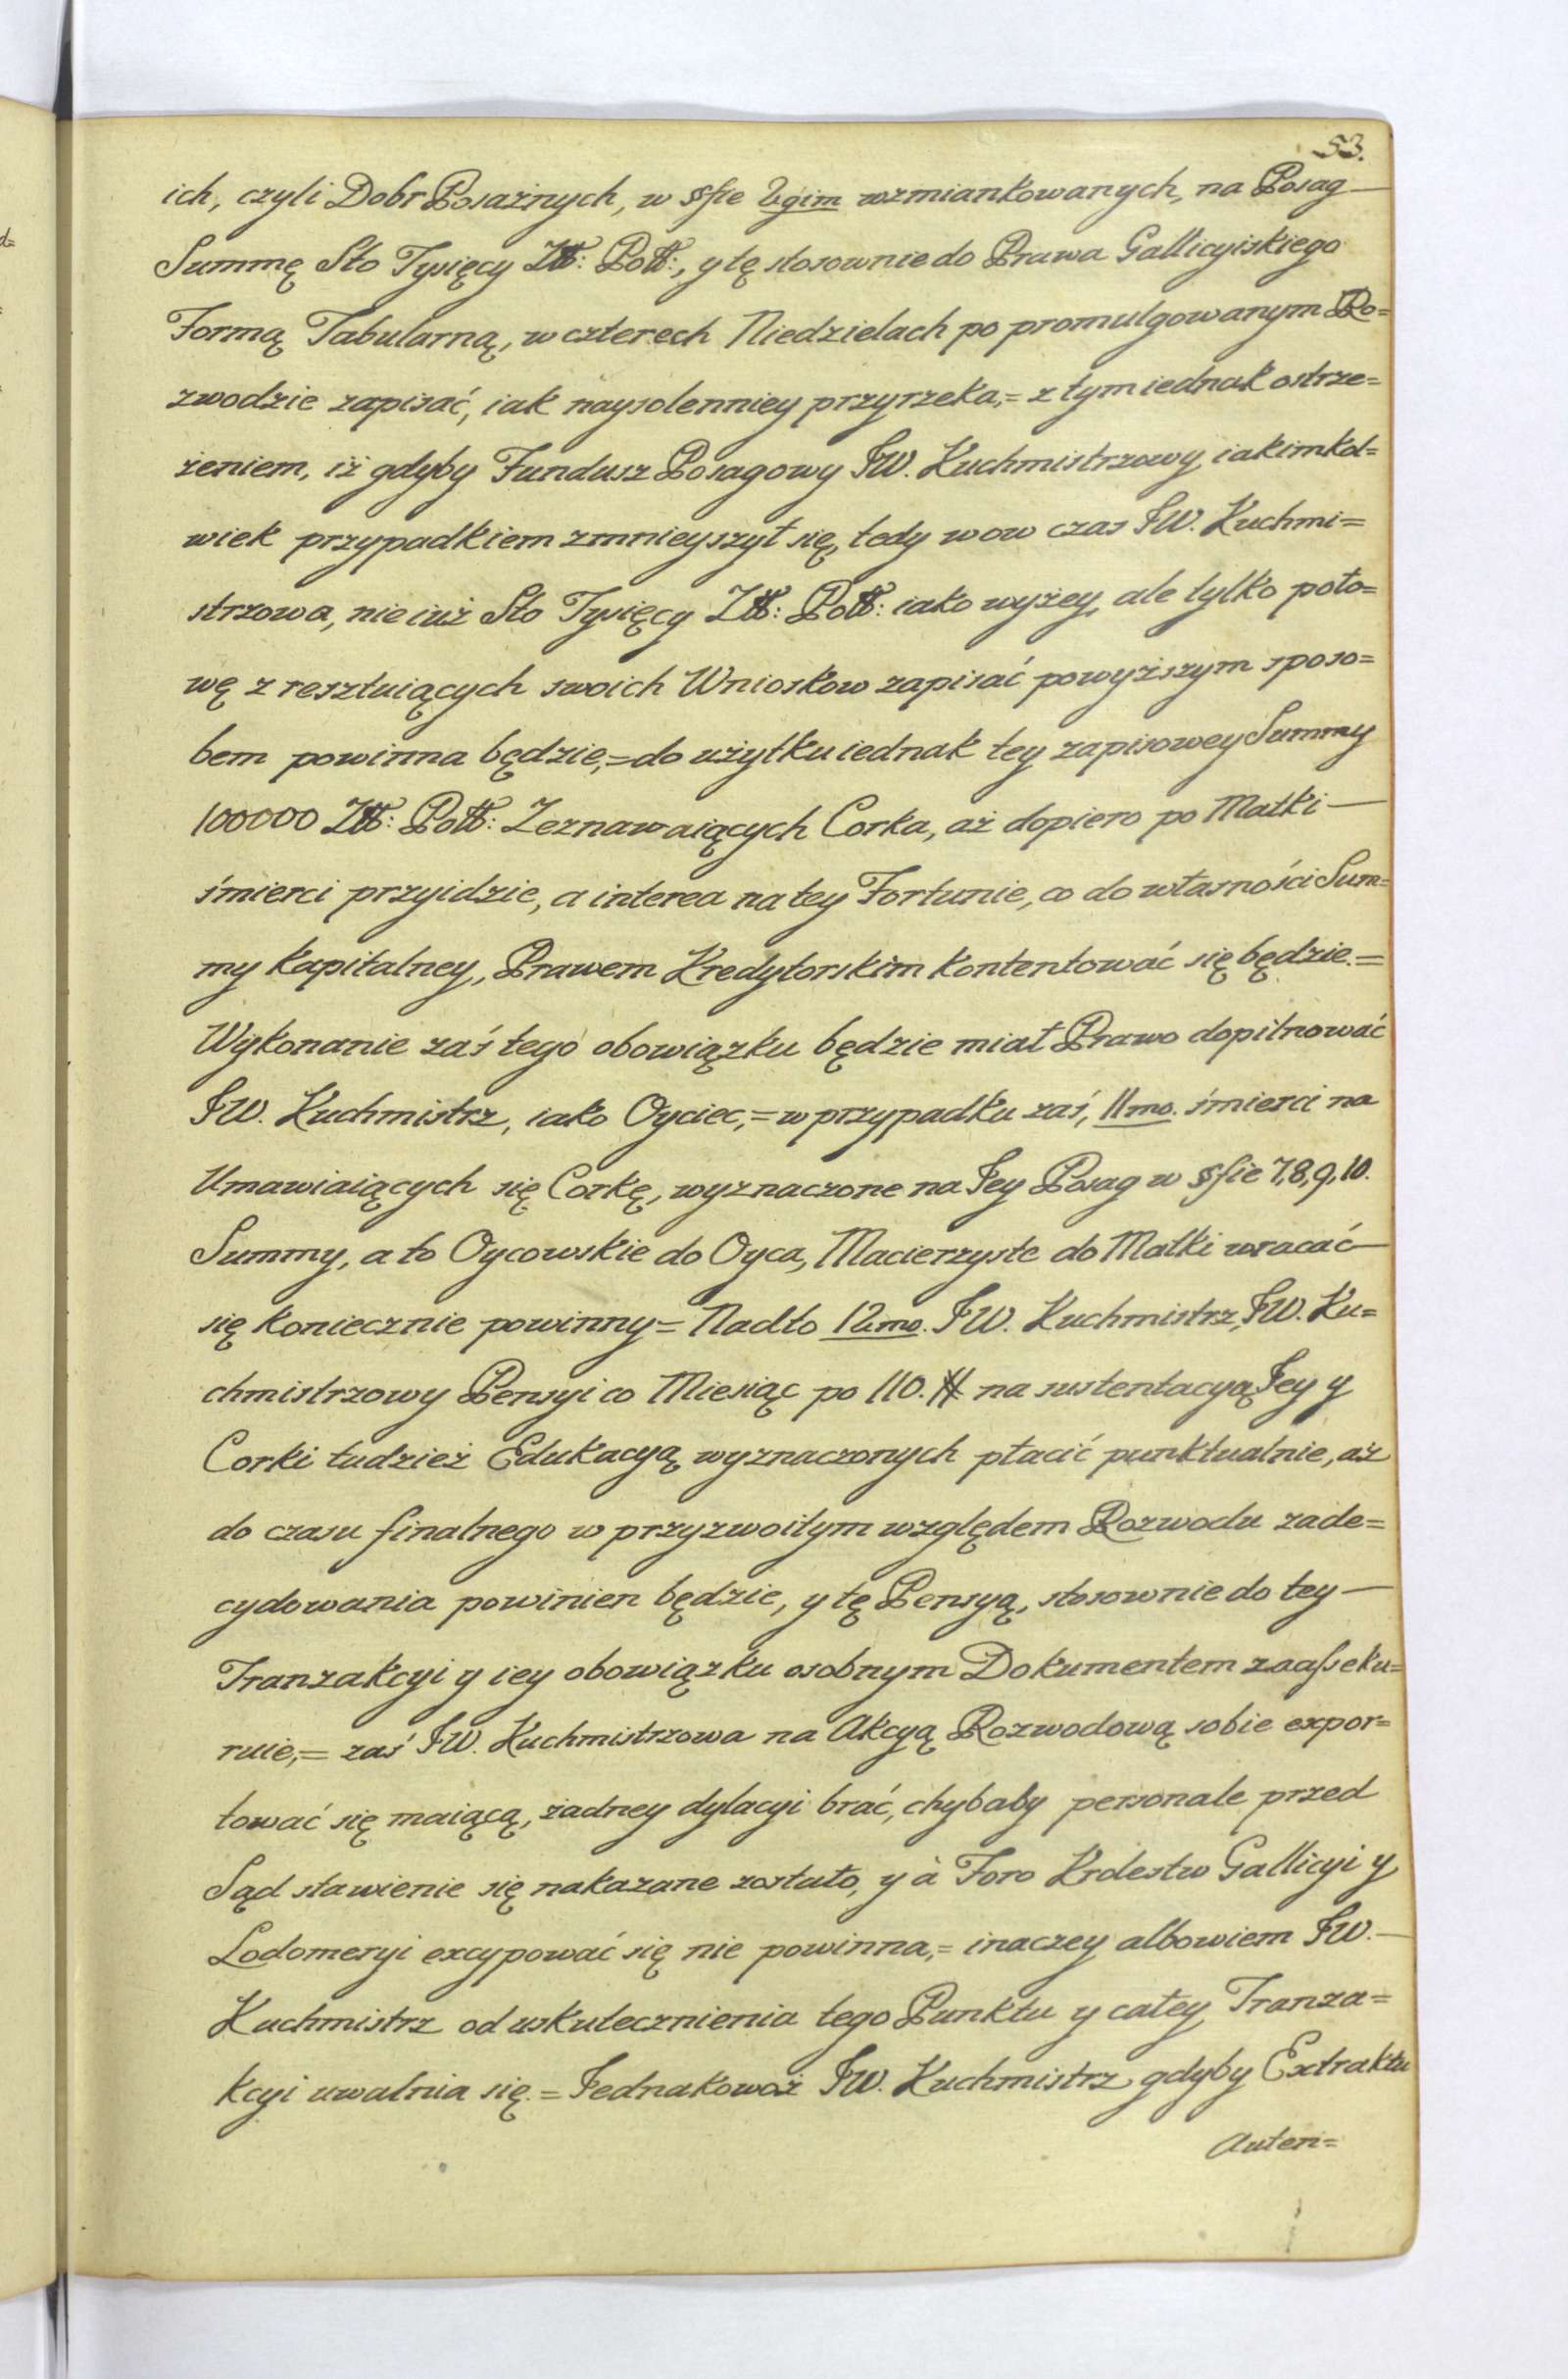 53.
ich, czyli Dobr Posażnych, w §fie 2gim wzmiankowanych, na Posag —
Summę Sto Tysięcy Złł: Poll:, y tę stosownie do Prawa Gallicyiskiego
Formą Tabularną, w czterech Niedzielach po promulgowanym Ro=
zwodzie zapisać, iak naysolenniey przyrzeka,= z tym iednak ostrze=
żeniem, iż gdyby Fundusz Posagowy JW. Kuchmistrzowy iakimkol=
wiek przypadkiem zmnieyszył się, tedy wow czas JW. Kuchmi=
strzowa, nie iuż Sto Tysięcy Złł: Poll: iako wyżey, ale tylko poło=
wę z resztuiących swoich Wniosków zapisać powyższym sposo=
bem powinna będzie,= do użytku iednak tey zapisowey Summy
100000 Złł: Poll: Zeznawaiących Corka, aż dopiero po Matki —
śmierci przyidzie, a interea na tey Fortunie, co do własności Sum=
my Kapitalney, Prawem Kredytorskim kontentować się będzie.=
Wykonanie zaś tego obowiązku będzie miał Prawo dopilnować
JW. Kuchmistrz, iako Oyciec,= w przypadku zaś, 11mo. śmierci na
Umawiaiących się Corkę, wyznaczone na Jey Posag w §fie 7,8,9,10.
Summy, a to Oycowskie do Oyca, Macierzyste do Matki wracać —
się koniecznie powinny = Nadto 12mo. JW. Kuchmistrz, JW. Ku=
chmistrzowy Pensyi co Miesiąc po 110. # na sustentacyą Jey y
Corki tudzież Edukacyą wyznaczonych płacić punktualnie, aż
do czasu finalnego w przyzwoitym względem Rozwodu zade=
cydowania powinien będzie, y tę Pensyą, stosownie do tey —
Tranzakcyi y iey obowiązku osobnym Dokumentem zaasseku=
ruie,= zaś JW. Kuchmistrzowa na Akcyą Rozwodową sobie expor=
tować się maiącą, żadney dylacyi brać, chybaby personale przed
Sąd stawienie się nakazane zostało, y à Foro Krolestw Gallicyi y
Lodomeryi excypować się nie powinna,= inaczey albowiem JW. —
Kuchmistrz od uskutecznienia tego Punktu y całey Tranza=
kcyi uwalnia się.= Jednakowoż JW. Kuchmistrz gdyby Extraktu
Auten=